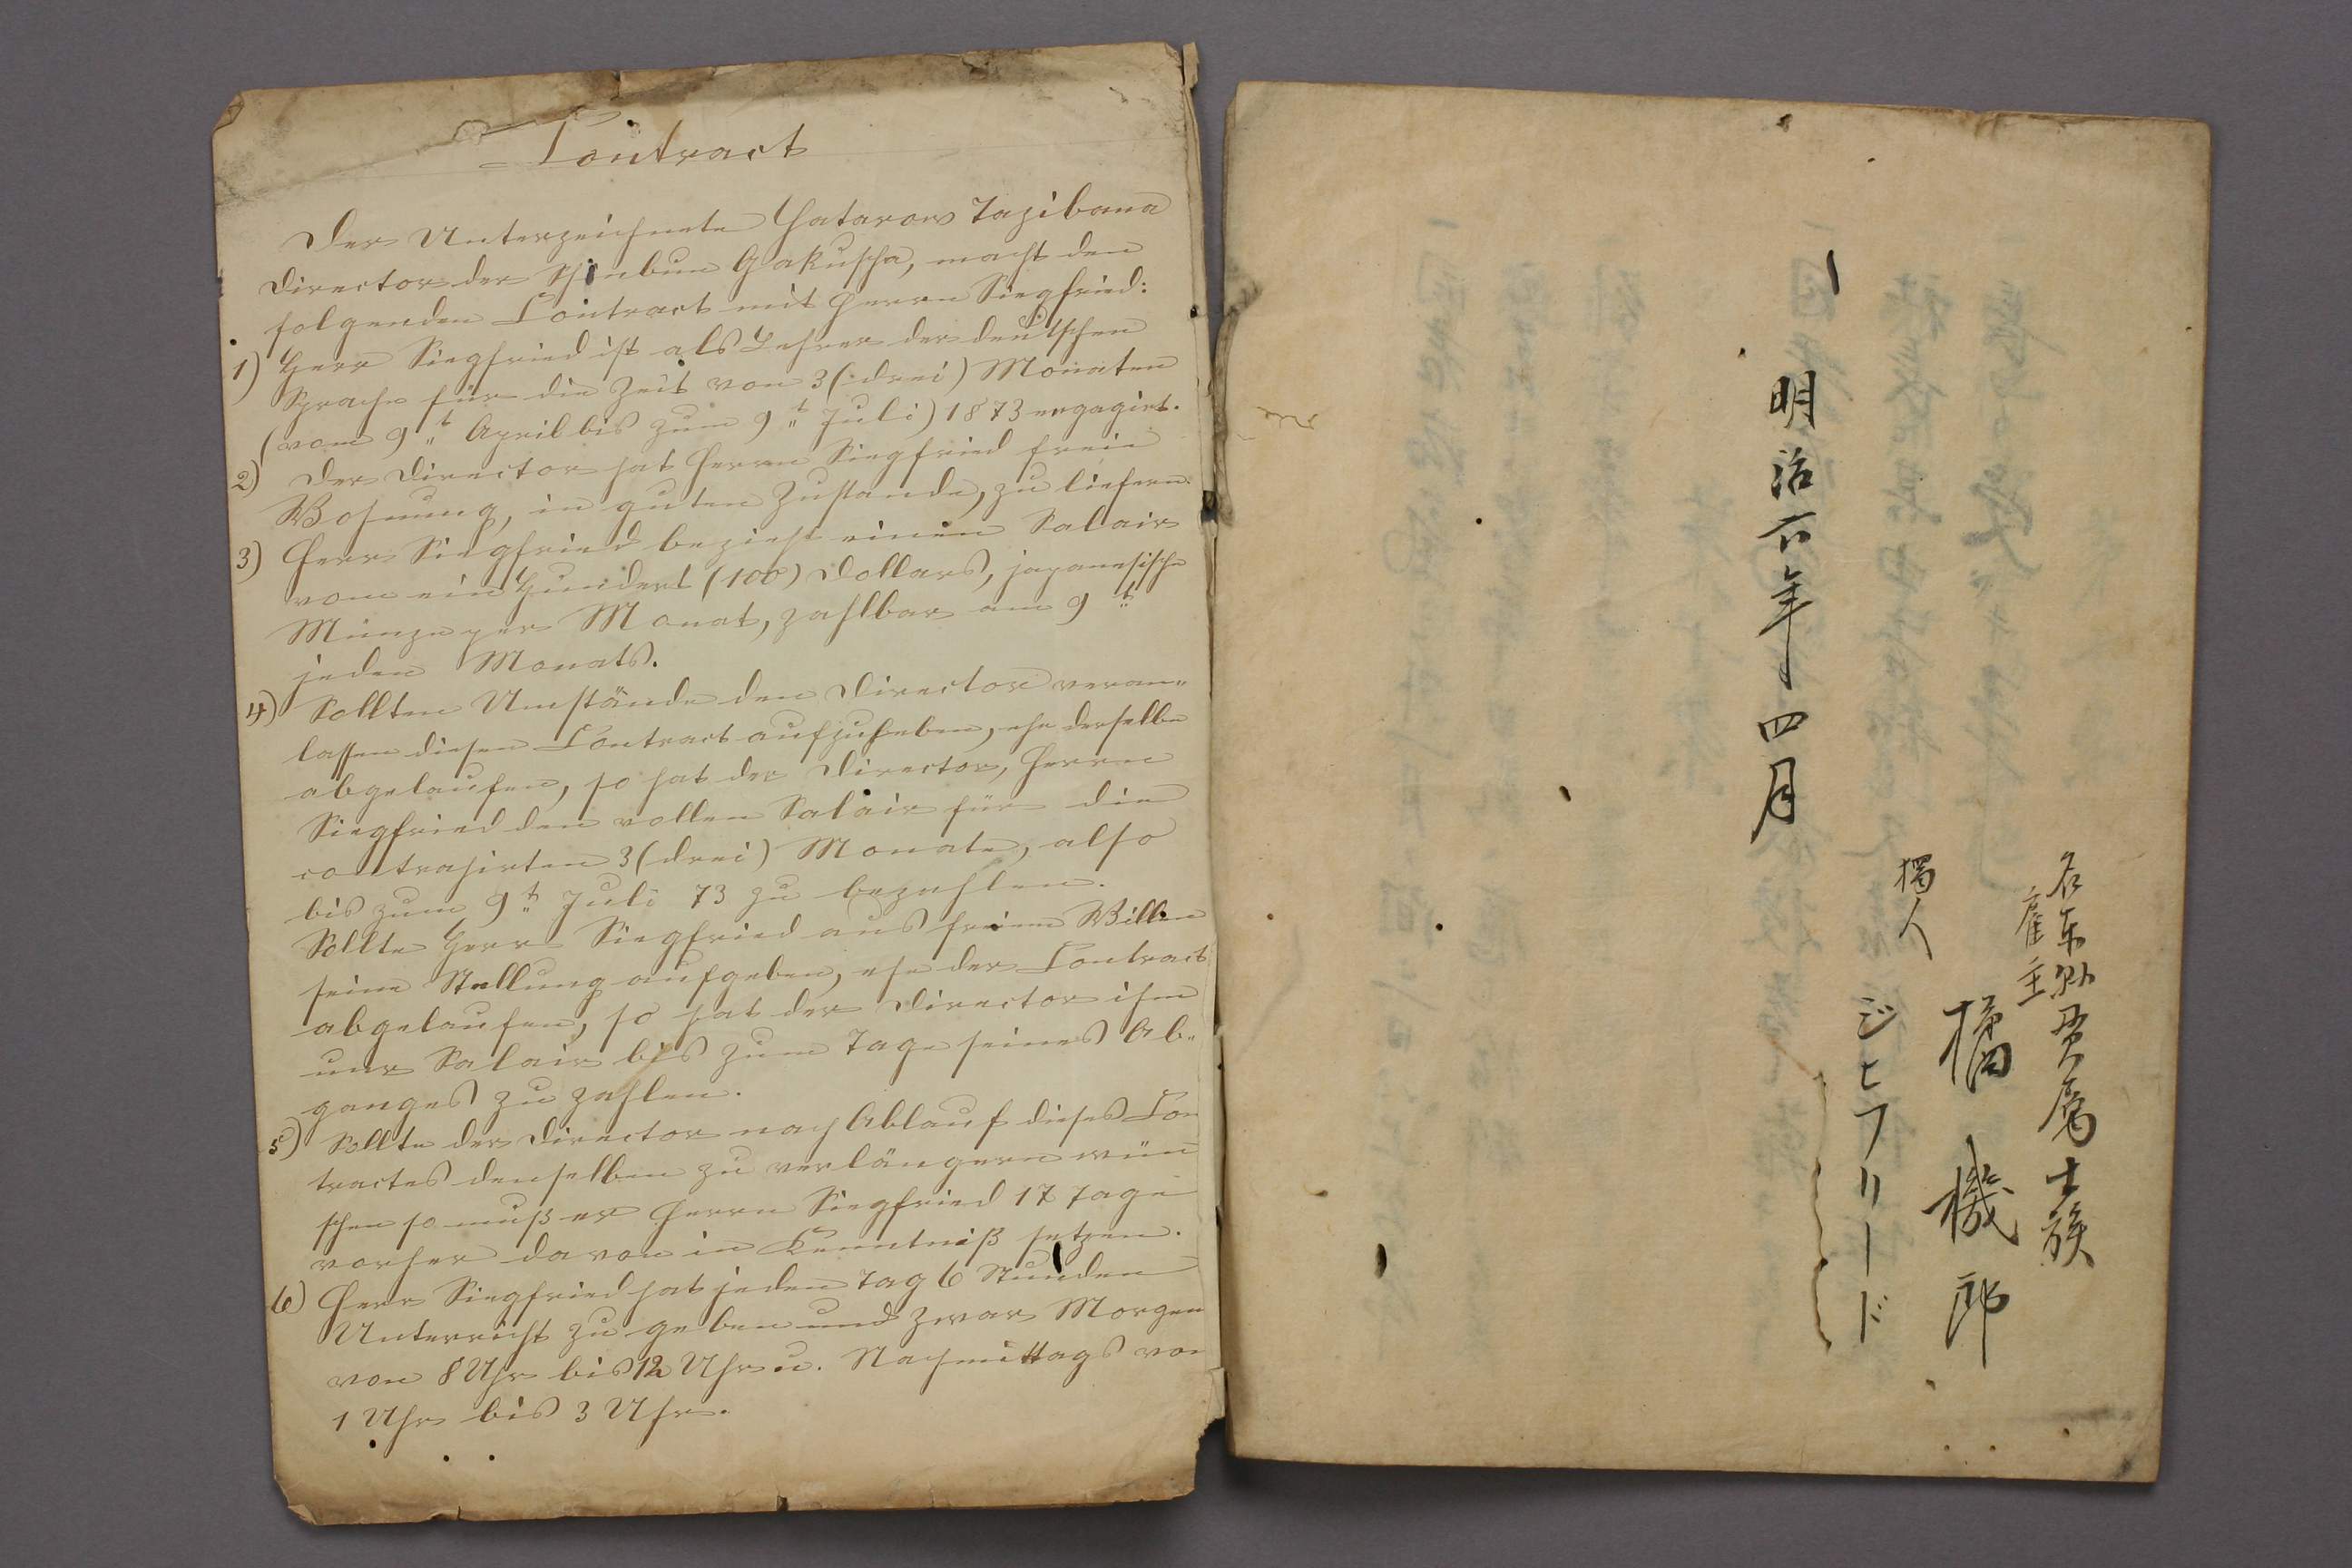 Contract
Der Unterzeichnete Hatarow Tazibana
Director der Schinbun Gakuscha, macht den
folgenden Contract mit Herrn Siegfried:
1) Herr Siegfried ist als Lehrer der deutschen
Sprache für die Zeit von 3 (drei) Monaten
(vom 9t April bis zum 9t Juli) 1873 engagirt.
2) Der Director hat Herrn Siegfried freie
Wohnung, in guten Zustande, zu liefern.
3) Herr Siegfried bezieht einen Salair
vom ein Hundert (100) Dollars, japanesische
Münze per Monat, zahlbar am 9t
jeden Monats.
4) Sollten Umstände den Director veran-
lassen diesen Contract aufzuheben, ehe derselbe
abgelaufen, so hat der Director, Herrn
Siegfried den vollen Salair für die
contrahirten 3 (drei) Monate, also
bis zum 9t Juli 73 zu bezahlen.
Sollte Herr Siegfried aus freiem Willen
seine Stellung aufgeben, ehe der Contract
abgelaufen, so hat der Director ihm
nur Salair bis zum Tage seines Ab-
ganges zu zahlen.
5) Sollte der Director nach Ablauf dieses Con
tractes denselben zu verlängern wün
schen so muß er Herrn Siegfried 17 Tage
vorher davon in Kenntniß setzen.
6) Herr Siegfried hat jeden Tag 6 Stunden
Unterricht zu geben und zwar Morgen
von 8 Uhr bis 12 Uhr u. Nachmittags von
1 Uhr bis 3 Uhr.
名東縣貫属士族
雇主
橘機郎
獨人
ジヒフリード
明治六年四月